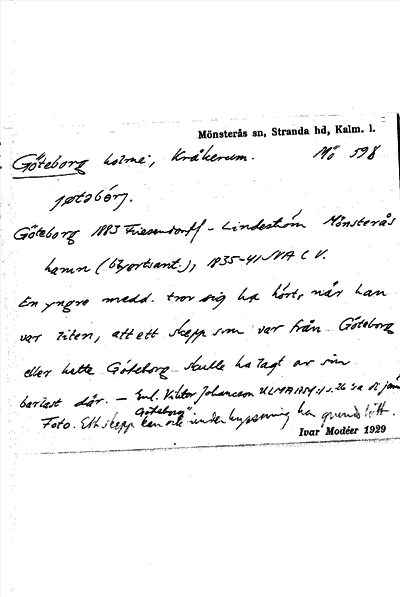 Mönsterås sn, Stranda hd, Kalm. l.
Göteborg holme, Kråkerum. Mö 598
jøtəbórj.
Göteborg 1883 Friesendorff - Lindeström Mönsterås
hamn (Utgortsant.), 1835-41 JVA C V.
En yngre medd. tror sig ha hört, när han
var liten, att ett skepp som var från Göteborg
eller hette Göteborg skulle ha lagt av sin
barlast där. — Enl. Viktor Johansson ULMA
Foto. Ett skepp "Göteborg" kan och under ha grundstött.
Ivar Modéer 1929